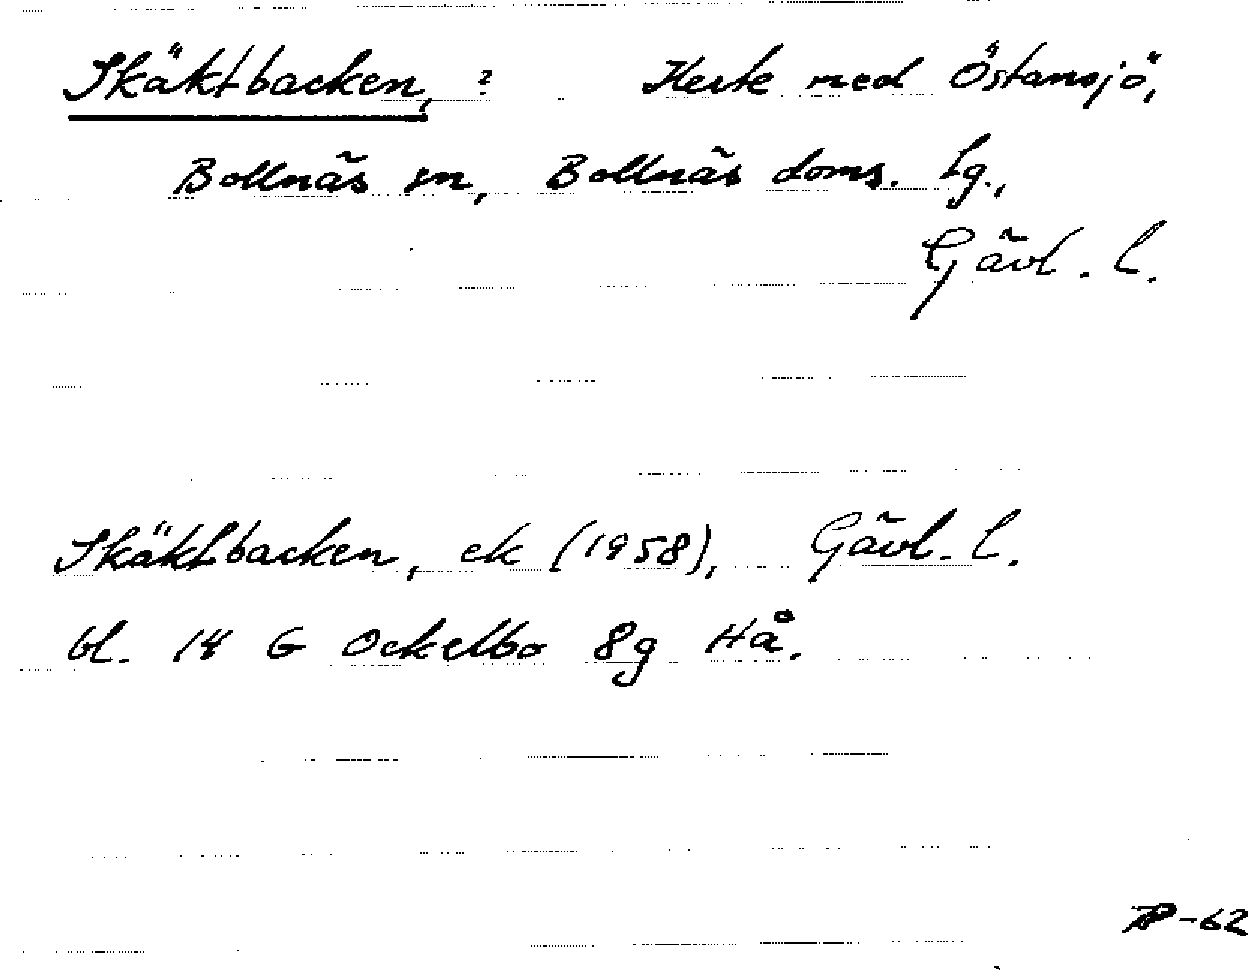 Skäktbacken, ? Herte med Östansjö,
Bollnäs sn, Bollnäs doms. lg.,
Gävl. l.
Skäktbacken, ek (1958), Gävl. l.
bl. 14 G Ockelbo 8g Hå.
-62